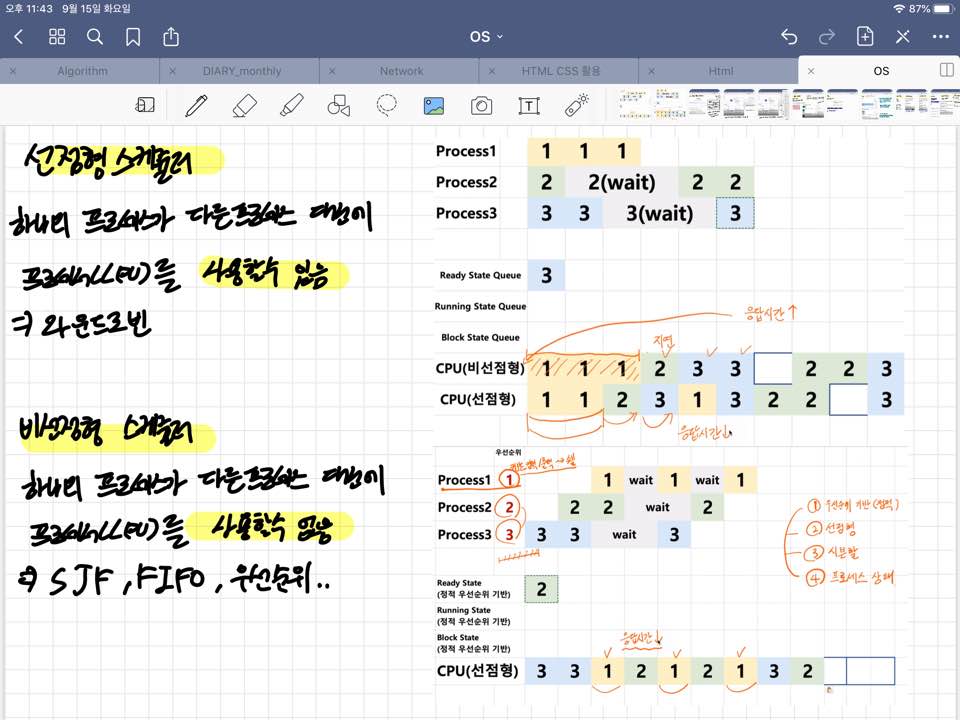 오후 11:43 9월 15일 화요일
87%
OS
Algorithm
DIARY_monthly
Network
HTML CSS 활용
Html
OS
선점형 스케줄러
하나의 프로세스가 다른프로세스 대신에
프로세서(CPU)를 사용할수 있음
⇒ 라운드로빈
비선점형 스케줄러
하나의 프로세스가 다른프로세스 대신에
프로세서(CPU)를 사용할수 없음
⇒ SJF, FIFO, 우선순위..
Process1 1 1 1
Process2 2 2(wait) 2 2
Process3 3 3 3(wait) 3
Ready State Queue 3
Running State Queue
Block State Queue
응답시간↑
지연
CPU(비선점형) 1 1 1 2 3 3 2 2 3
CPU(선점형) 1 1 2 3 1 3 2 2 3
응답시간↓
우선순위
Process1 1 1 wait 1 wait 1
Process2 2 2 2 wait 2
Process3 3 3 3 wait 3
① 우선순위 기반 (정적)
② 선점형
③ 시분할
④ 프로세스 상태
Ready State
(정적 우선순위 기반) 2
Running State
(정적 우선순위 기반)
Block State
(정적 우선순위 기반)
응답시간↓
CPU(선점형) 3 3 1 2 1 2 1 3 2